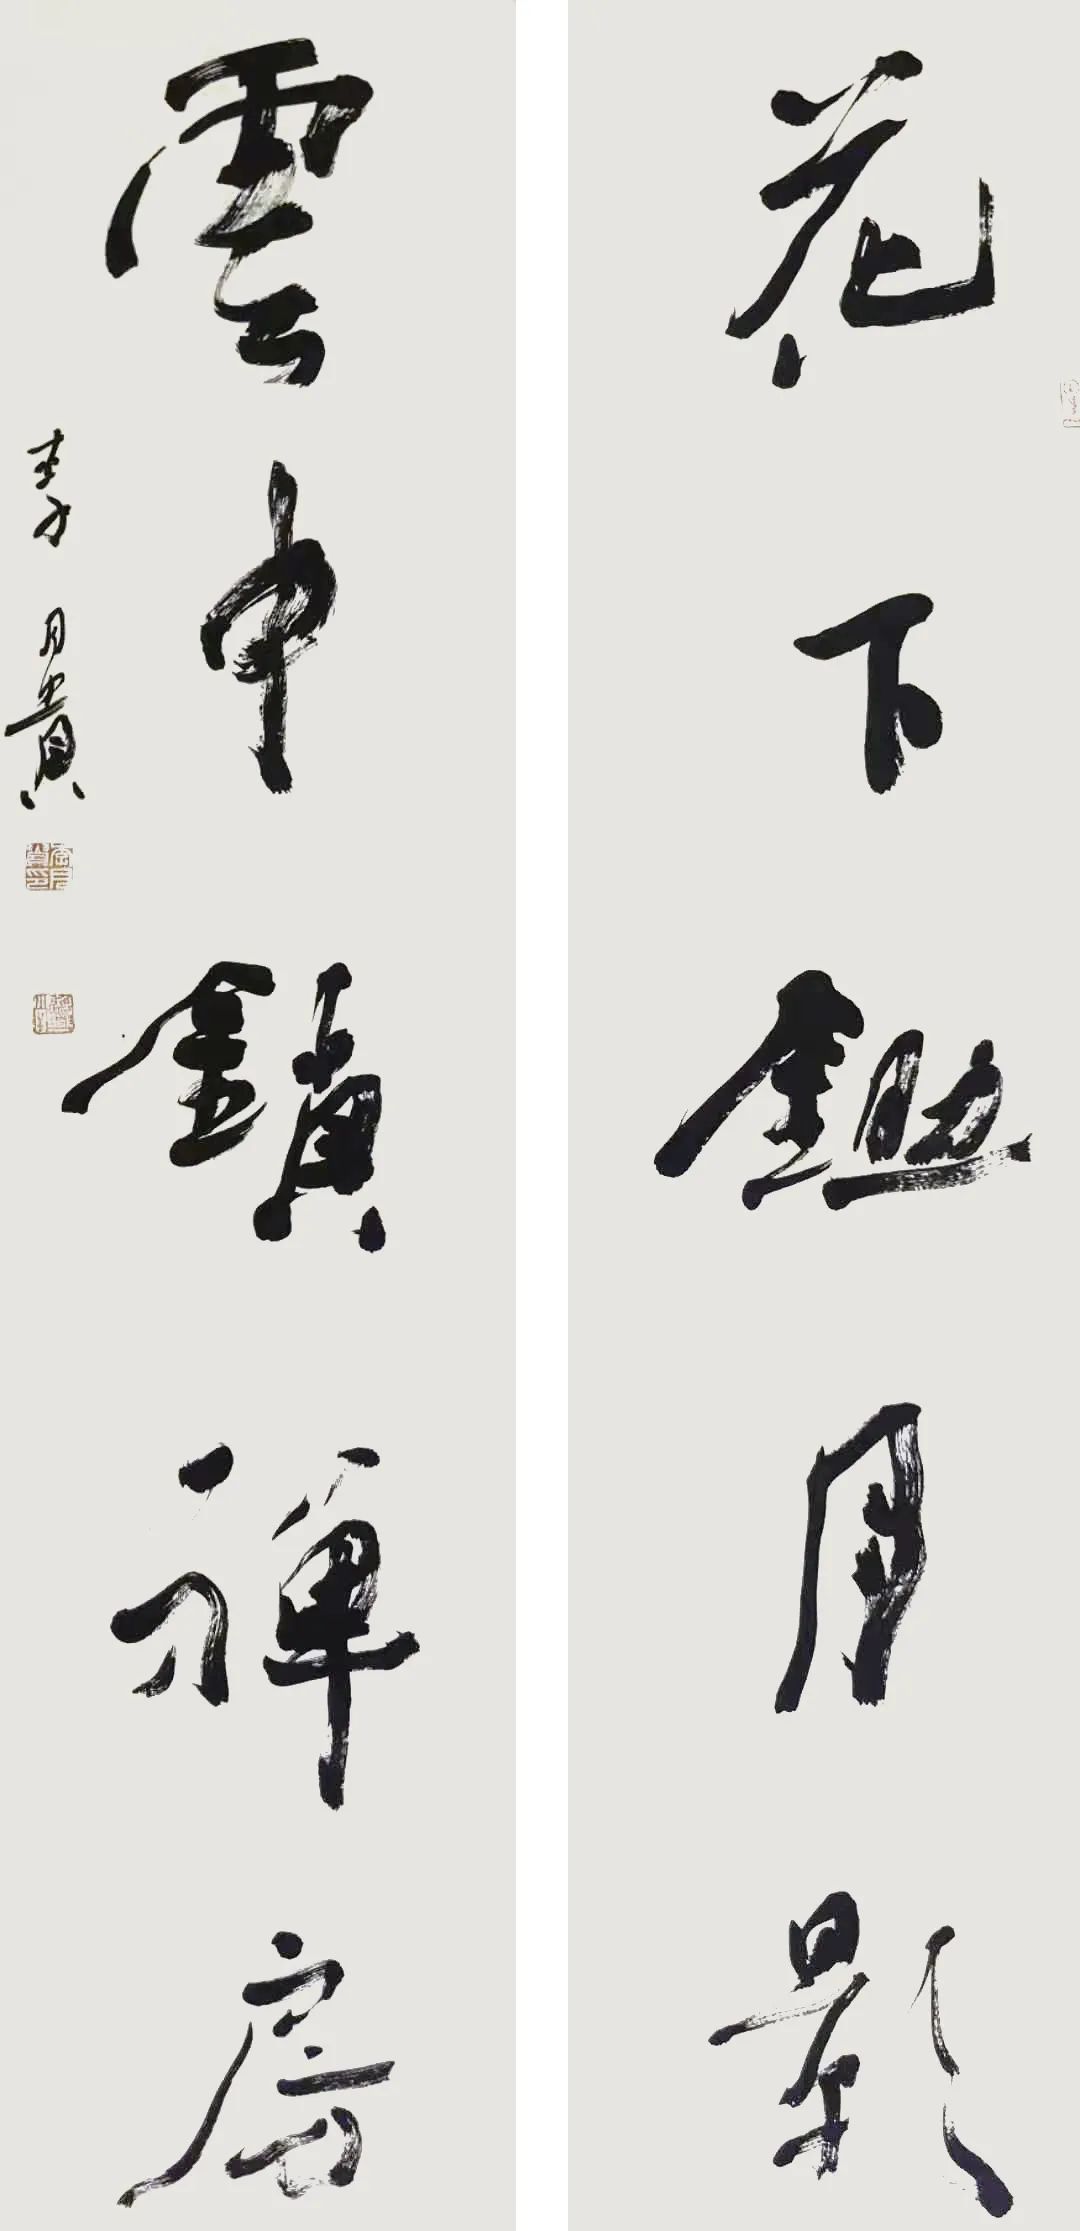 花下鋤月影
雲中鎖禪房
李月貴